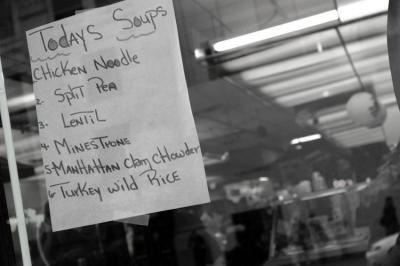 Today's Soups
Chicken Noodle
2. Split Pea
3. Lentil
4 Minestrone
5 Manhattan Clam Chowder
6 Turkey Wild Rice